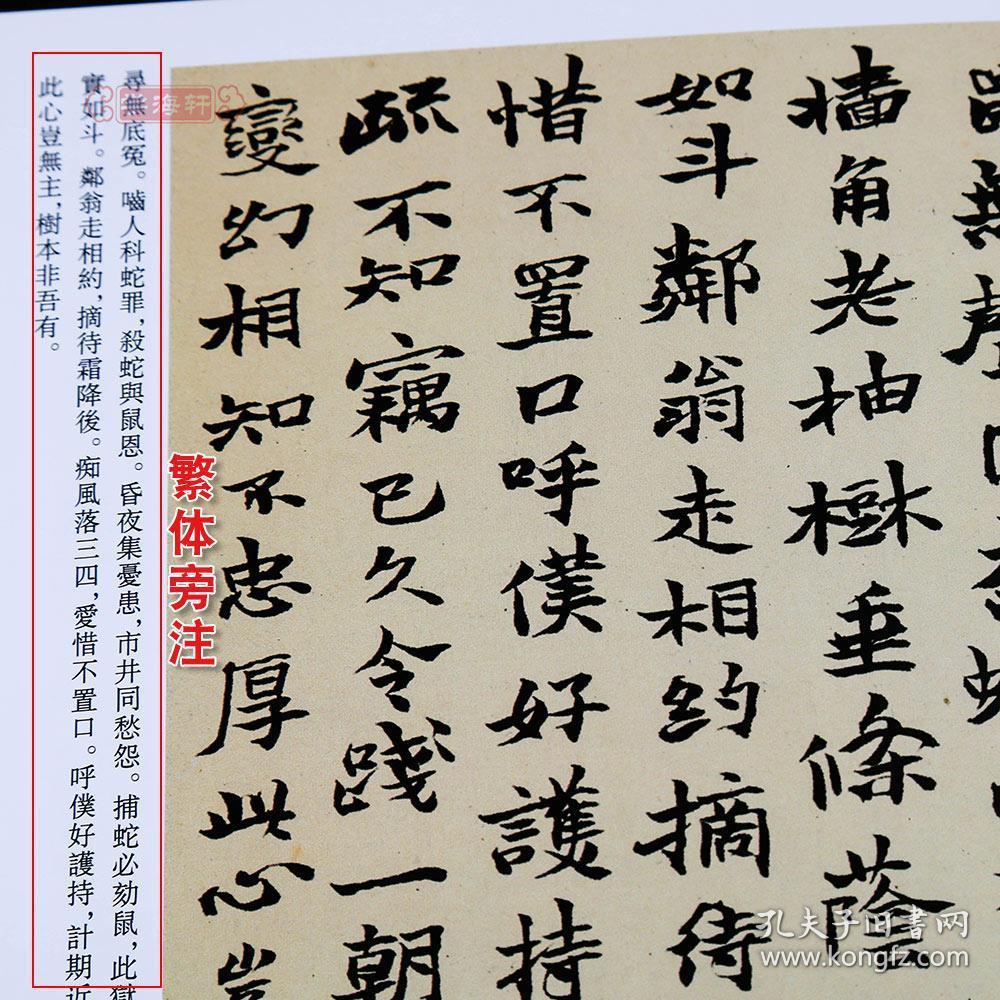 無
墻角老柚樹垂條蔭
如斗鄰翁走相約摘待
惜不置口呼僕好護持
疏不知竊已久令踐一朝
變幻相知不忠厚此心豈
尋無底冤。嚙人科蛇罪，殺蛇與鼠恩。昏夜集憂患，市井同愁怨。捕蛇必劾鼠，此獄
實如斗。鄰翁走相約，摘待霜降後。痴風落三四，愛惜不置口。呼僕好護持，計期近
此心豈無主，樹本非吾有。
繁体旁注
海轩
孔夫子旧书网
www.kongfz.com